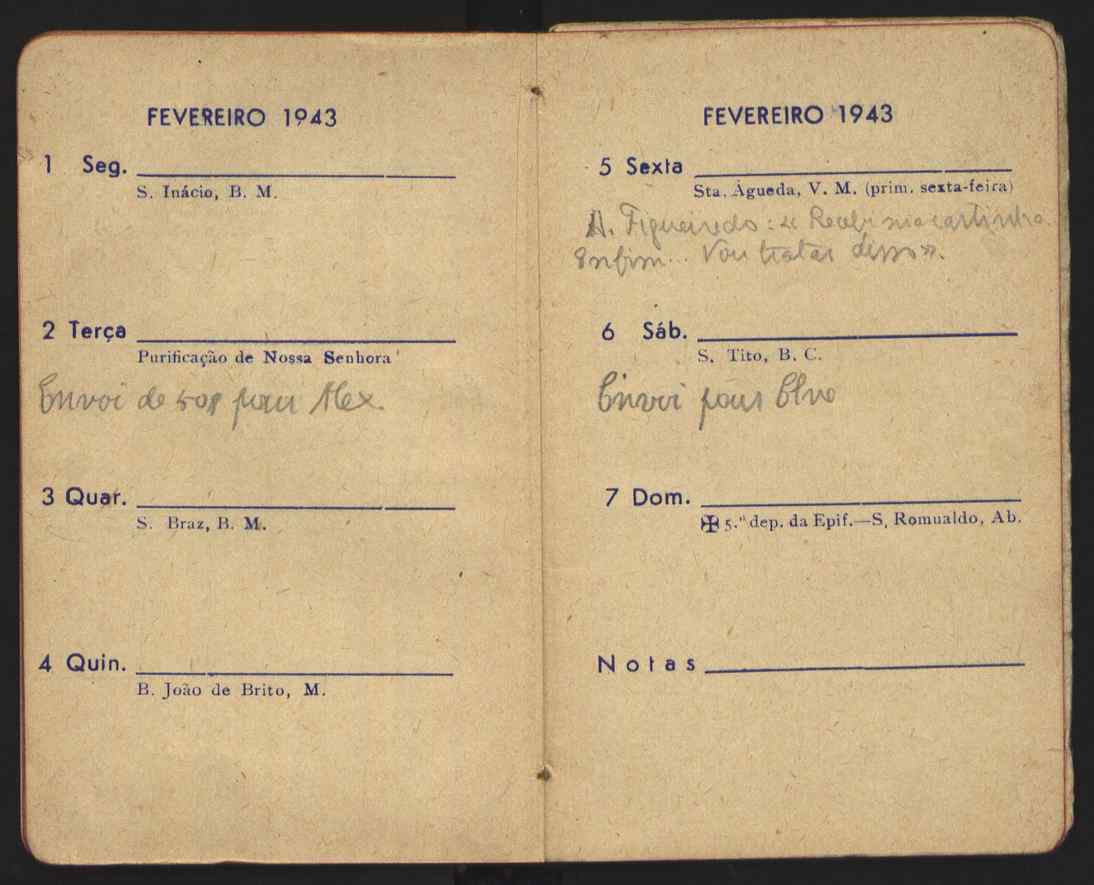 FEVEREIRO 1943
1 Seg.
S. Inácio, B. M.
2 Terça
Purificação de Nossa Senhora
Envoi de 50$ pour Alex.
3 Quar.
S. Braz, B. M.
4 Quin.
B. João de Brito, M.
FEVEREIRO 1943
5 Sexta
Sta. Águeda, V. M. (prim. sexta-feira)
A. Figueiredo: « Recebi sua cartinha.
Enfim... Vou tratar disso ».
6 Sáb.
S. Tito, B. C.
Envoi pour
7 Dom.
✠ 5.º dep. da Epif.—S. Romualdo, Ab.
Notas